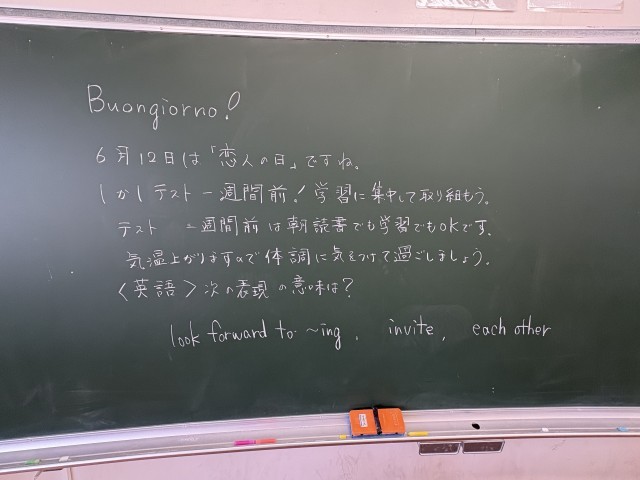 Buongiorno!
6月12日は「恋人の日」ですね。
しかしテスト一週間前!学習に集中して取り組もう。
テスト 二週間前は朝読書でも学習でもOKです。
気温上がりますので体調に気をつけて過ごしましょう。
〈英語〉次の表現の意味は?
look forward to ~ing, invite, each other